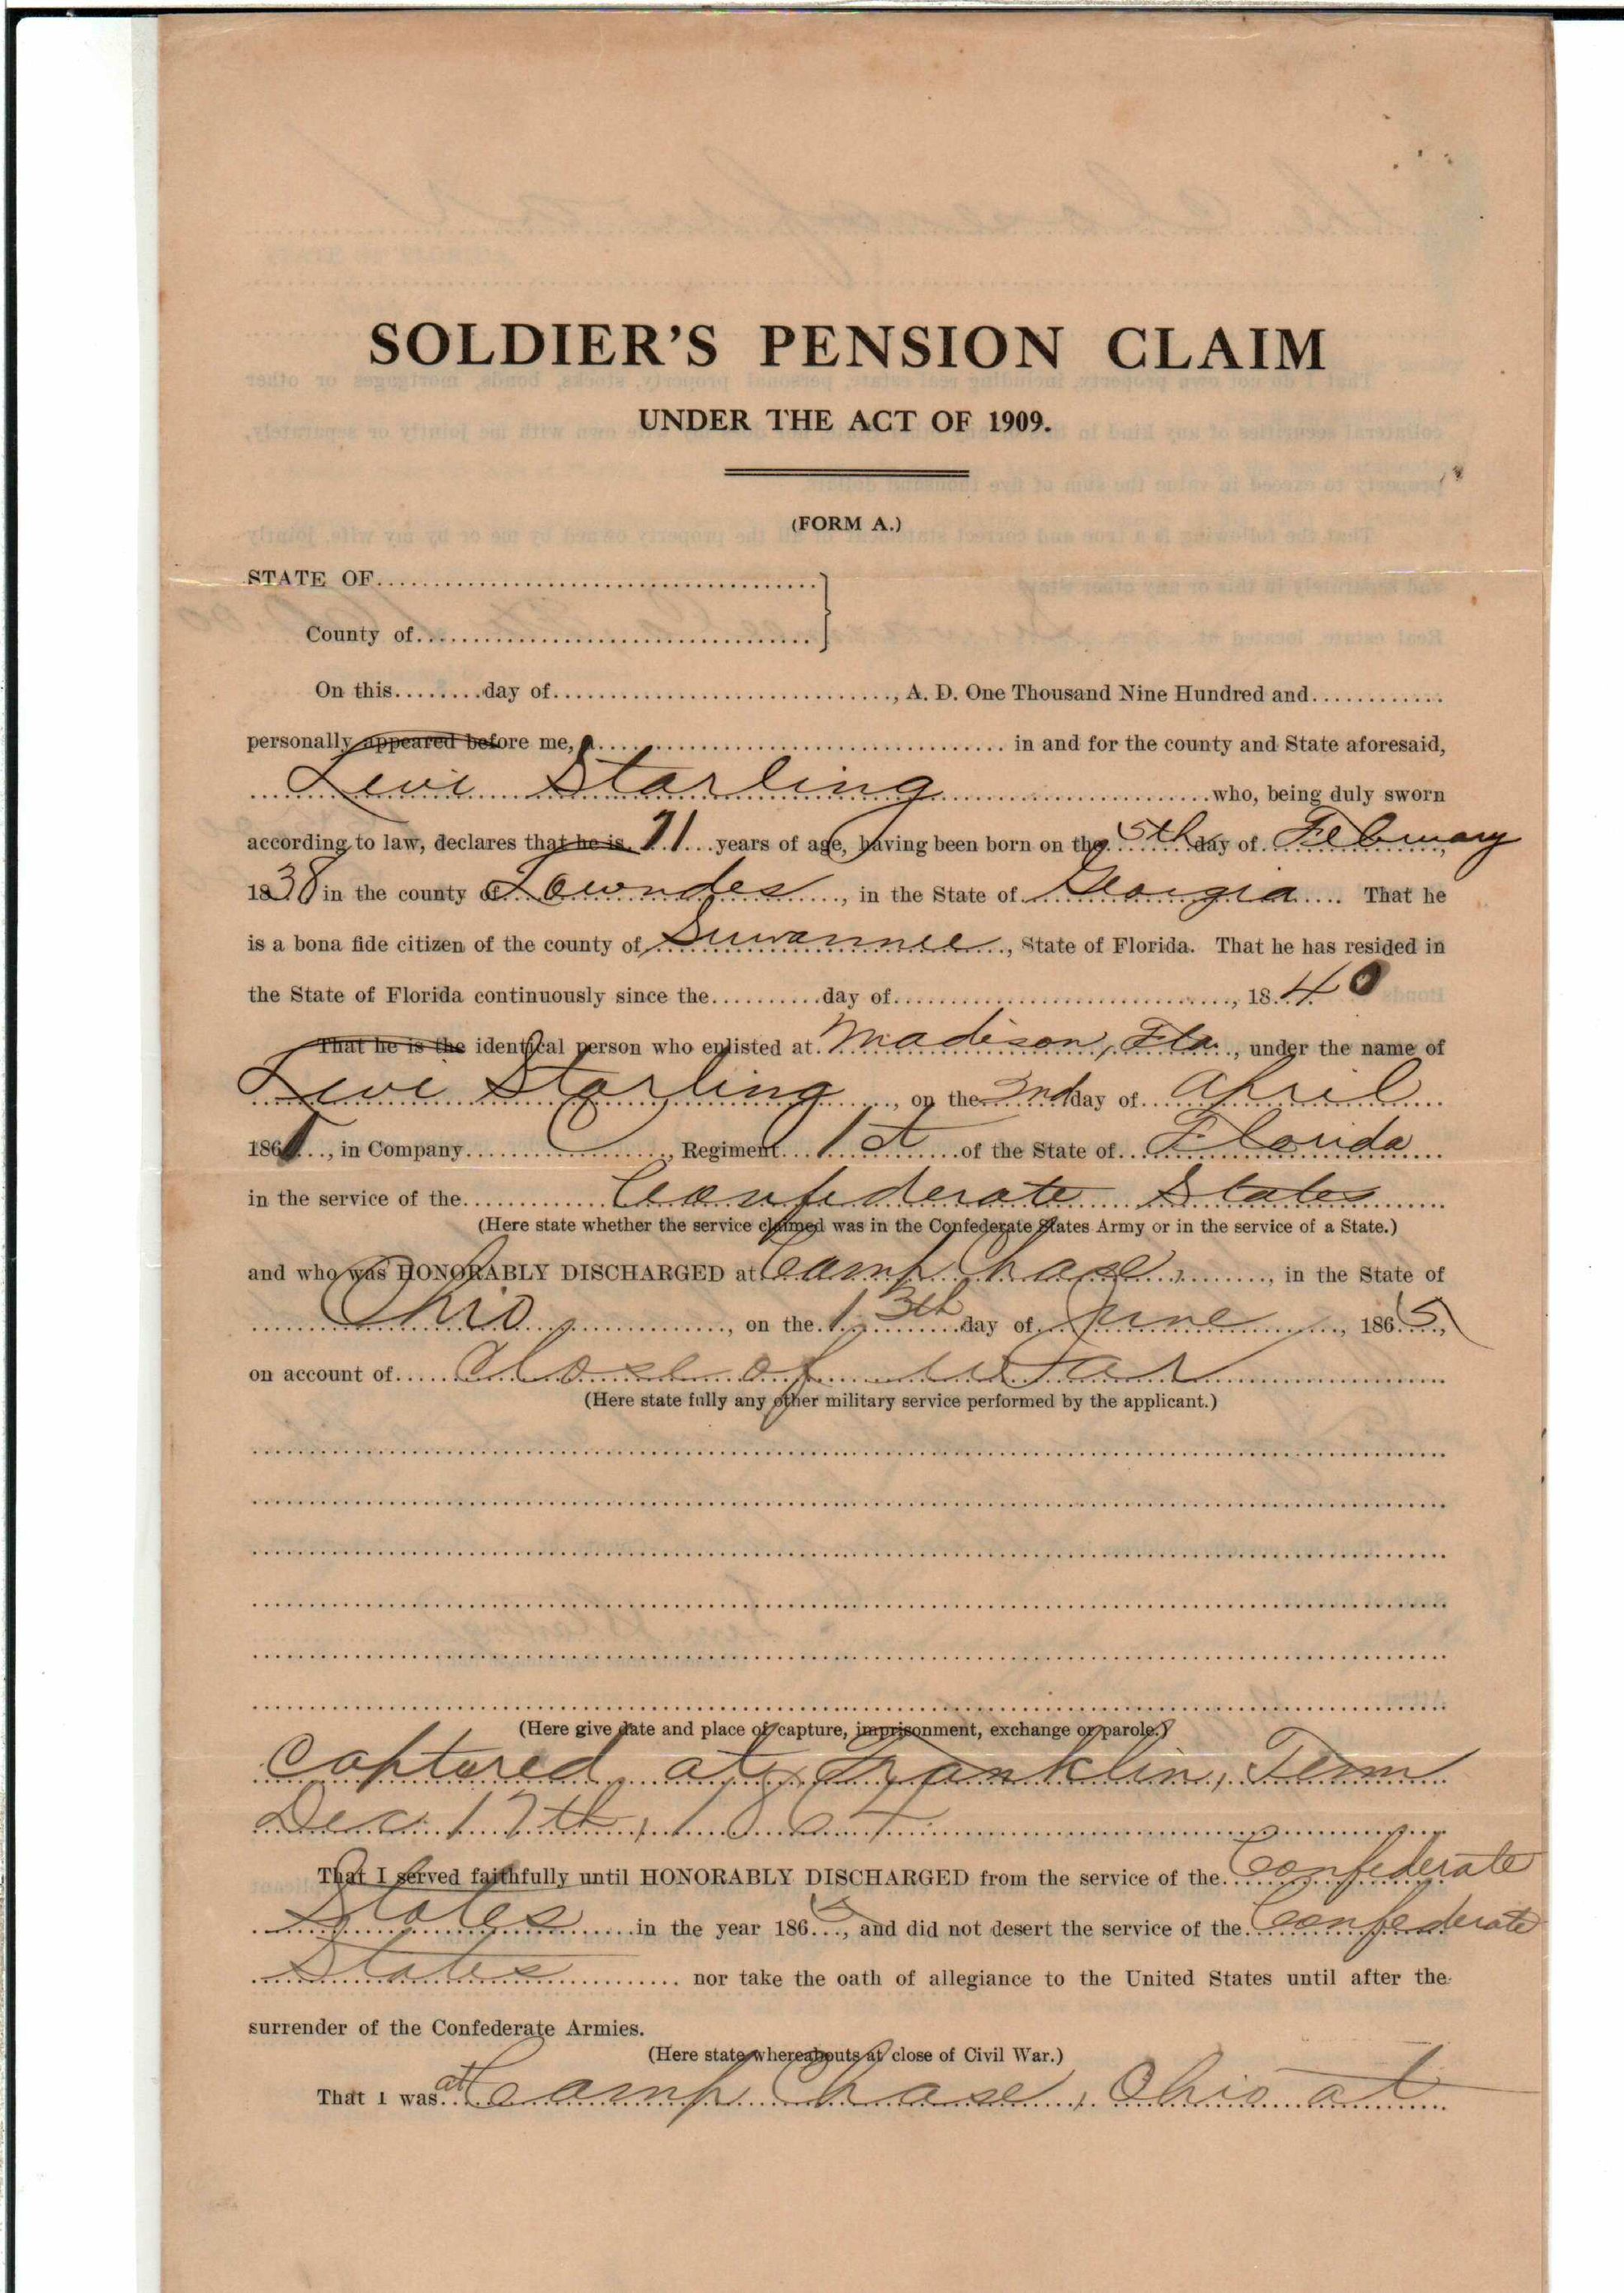 SOLDIER'S PENSION CLAIM
UNDER THE ACT OF 1909.
(FORM A.)
STATE OF
County of
On this ........ day of ........, A. D. One Thousand Nine Hundred and ........
personally appeared before me, a ........ in and for the county and State aforesaid,
Levi Starling ........ who, being duly sworn
according to law, declares that he is 71 years of age, having been born on the 5th day of February
1838 in the county of Lowndes, in the State of Georgia. That he
is a bona fide citizen of the county of Suwannee, State of Florida. That he has resided in
the State of Florida continuously since the ........ day of ........, 1840
That he is the identical person who enlisted at Madison, Fla., under the name of
Levi Starling, on the 2nd day of April
1861, in Company C, Regiment 1st of the State of Florida
in the service of the Confederate States
(Here state whether the service claimed was in the Confederate States Army or in the service of a State.)
and who was HONORABLY DISCHARGED at Camp Chase, in the State of
Ohio, on the 13th day of June, 1865,
on account of Close of War
(Here state fully any other military service performed by the applicant.)
(Here give date and place of capture, imprisonment, exchange or parole.)
Captured at Franklin, Tenn
Dec. 17th, 1864
That I served faithfully until HONORABLY DISCHARGED from the service of the Confederate
States in the year 1865, and did not desert the service of the Confederate
States nor take the oath of allegiance to the United States until after the
surrender of the Confederate Armies.
(Here state whereabouts at close of Civil War.)
That I was at Camp Chase, Ohio at